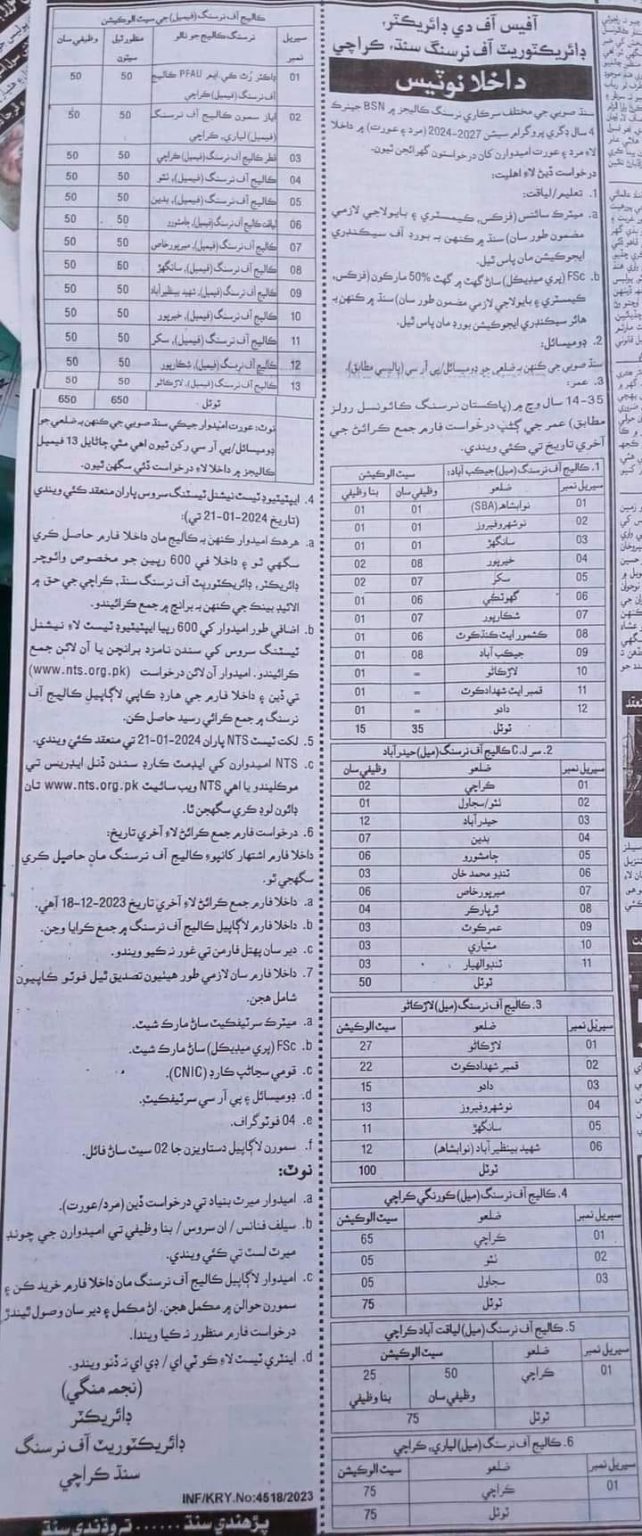 آفيس آف دي ڊائريڪٽر،
ڊائريڪٽوريٽ آف نرسنگ سنڌ، ڪراچي
داخلا نوٽيس
سنڌ صوبي جي مختلف سرڪاري نرسنگ ڪاليجز ۾ BSN جينرڪ
4 سال ڊگري پروگرام سيشن 2027-2024 (مرد ۽ عورت) ۾ داخلا
لاءِ مرد ۽ عورت اميدوارن کان درخواستون گهرائجن ٿيون.
درخواست ڏيڻ لاءِ اهليت:
1. تعليم/لياقت:
a. ميٽرڪ سائنس (فزڪس، ڪيمسٽري ۽ بايولاجي لازمي
مضمون طور سان) سنڌ ۾ ڪنهن به بورڊ آف سيڪنڊري
ايجوڪيشن مان پاس ٿيل.
b. FSc (پري ميڊيڪل) ساڻ گهٽ ۾ گهٽ 50% مارڪون (فزڪس،
ڪيمسٽري ۽ بايولاجي لازمي مضمون طور سان) سنڌ ۾ ڪنهن به
هائر سيڪنڊري ايجوڪيشن بورڊ مان پاس ٿيل.
2. ڊوميسائل:
سنڌ صوبي جي ڪنهن به ضلعي جو ڊوميسائل/پي آر سي (پاليسي مطابق).
3. عمر:
14-35 سال وچ ۾ (پاڪستان نرسنگ ڪائونسل رولز
مطابق) عمر جي ڳڻپ درخواست فارم جمع ڪرائڻ جي
آخري تاريخ تي ڪئي ويندي.
1. ڪاليج آف نرسنگ (ميل) جيڪب آباد:
سيريل نمبر ضلعو سيٽ الوڪيشن
وظيفي سان بنا وظيفي
01 نوابشاهه (SBA) 01 01
02 نوشهروفيروز 01 01
03 سانگهڙ 01 01
04 خيرپور 08 02
05 سکر 07 02
06 گهوٽڪي 06 01
07 شڪارپور 07 01
08 ڪشمور ايٽ ڪنڌڪوٽ 06 01
09 جيڪب آباد 08 01
10 لاڙڪاڻو = 01
11 قمبر ايٽ شهدادڪوٽ = 01
12 دادو = 01
ٽوٽل 35 15
2. سر C.J ڪاليج آف نرسنگ (ميل) حيدرآباد
سيريل نمبر ضلعو وظيفي سان
01 ڪراچي 02
02 ٺٽو/سجاول 01
03 حيدرآباد 12
04 بدين 07
05 ڄامشورو 06
06 ٽنڊو محمد خان 03
07 ميرپورخاص 06
08 ٿرپارڪر 04
09 عمرڪوٽ 03
10 مٽياري 03
11 ٽنڊوالهيار 03
ٽوٽل 50
3. ڪاليج آف نرسنگ (ميل) لاڙڪاڻو
سيريل نمبر ضلعو سيٽ الوڪيشن
01 لاڙڪاڻو 27
02 قمبر شهدادڪوٽ 22
03 دادو 15
04 نوشهروفيروز 13
05 سانگهڙ 11
06 شهيد بينظير آباد (نوابشاهه) 12
ٽوٽل 100
4. ڪاليج آف نرسنگ (ميل) ڪورنگي ڪراچي
سيريل نمبر ضلعو سيٽ الوڪيشن
01 ڪراچي 65
02 ٺٽو 05
03 سجاول 05
ٽوٽل 75
5. ڪاليج آف نرسنگ (ميل) لياقت آباد ڪراچي
سيريل نمبر ضلعو سيٽ الوڪيشن
01 ڪراچي 50 25
وظيفي سان بنا وظيفي
ٽوٽل 75
6. ڪاليج آف نرسنگ (ميل) لياري، ڪراچي
سيريل نمبر ضلعو سيٽ الوڪيشن
01 ڪراچي 75
ٽوٽل 75
ڪاليج آف نرسنگ (فيميل) جي سيٽ الوڪيشن
سيريل نمبر نرسنگ ڪاليج جو نالو منظور ٿيل سيٽون وظيفي سان
01 ڊاڪٽر رٿ ڪي. ايم PFAU ڪاليج
آف نرسنگ (فيميل) ڪراچي 50 50
02 اياز سمون ڪاليج آف نرسنگ
(فيميل) لياري، ڪراچي 50 50
03 قطر ڪاليج آف نرسنگ (فيميل) ڪراچي 50 50
04 ڪاليج آف نرسنگ (فيميل)، ٺٽو 50 50
05 ڪاليج آف نرسنگ (فيميل)، بدين 50 50
06 لياقت ڪاليج آف نرسنگ (فيميل)، ڄامشورو 50 50
07 ڪاليج آف نرسنگ (فيميل)، ميرپورخاص 50 50
08 ڪاليج آف نرسنگ (فيميل)، سانگهڙ 50 50
09 ڪاليج آف نرسنگ (فيميل)، شهيد بينظيرآباد 50 50
10 ڪاليج آف نرسنگ (فيميل)، خيرپور 50 50
11 ڪاليج آف نرسنگ (فيميل)، سکر 50 50
12 ڪاليج آف نرسنگ (فيميل)، شڪارپور 50 50
13 ڪاليج آف نرسنگ (فيميل)، لاڙڪاڻو 50 50
ٽوٽل 650 650
نوٽ: عورت اميدوار جيڪي سنڌ صوبي جي ڪنهن به ضلعي جو
ڊوميسائل/پي آر سي رکن ٿيون اهي مٿي ڄاڻايل 13 فيميل
ڪاليجز ۾ داخلا لاءِ درخواست ڏئي سگهن ٿيون.
4. ايپٽيٽيوڊ ٽيسٽ نيشنل ٽيسٽنگ سروس پاران منعقد ڪئي ويندي
(تاريخ 2024-01-21 تي):
a. هرهڪ اميدوار ڪنهن به ڪاليج مان داخلا فارم حاصل ڪري
سگهي ٿو ۽ داخلا في 600 رپين جو مخصوص وائوچر
ڊائريڪٽر، ڊائريڪٽوريٽ آف نرسنگ سنڌ، ڪراچي جي حق ۾
الائيڊ بينڪ جي ڪنهن به برانچ ۾ جمع ڪرائيندو.
b. اضافي طور اميدوار کي 600 رپيا ايپٽيٽيوڊ ٽيسٽ لاءِ نيشنل
ٽيسٽنگ سروس کي سندن نامزد برانچن يا آن لائن جمع
ڪرائيندو. اميدوار آن لائن درخواست (www.nts.org.pk)
تي ڏين ۽ داخلا فارم جي هارڊ ڪاپي لاڳاپيل ڪاليج آف
نرسنگ ۾ جمع ڪرائي رسيد حاصل ڪن.
5. لکت ٽيسٽ NTS پاران 2024-01-21 تي منعقد ڪئي ويندي.
c. NTS اميدوارن کي ايڊمٽ ڪارڊ سندن ڏنل ايڊريس تي
موڪليندو يا اهي NTS ويب سائيٽ www.nts.org.pk تان
ڊائون لوڊ ڪري سگهجن ٿا.
6. درخواست فارم جمع ڪرائڻ لاءِ آخري تاريخ:
داخلا فارم اشتهار کانپوءِ ڪاليج آف نرسنگ مان حاصل ڪري
سگهجي ٿو.
a. داخلا فارم جمع ڪرائڻ لاءِ آخري تاريخ 2023-12-18 آهي.
b. داخلا فارم لاڳاپيل ڪاليج آف نرسنگ ۾ جمع ڪرايا وڃن.
c. دير سان پهتل فارمن تي غور نه ڪيو ويندو.
7. داخلا فارم سان لازمي طور هيٺيون تصديق ٿيل فوٽو ڪاپيون
شامل هجن.
a. ميٽرڪ سرٽيفڪيٽ ساڻ مارڪ شيٽ.
b. FSc (پري ميڊيڪل) ساڻ مارڪ شيٽ.
c. قومي سڃاڻپ ڪارڊ (CNIC).
d. ڊوميسائل ۽ پي آر سي سرٽيفڪيٽ.
e. 04 فوٽوگراف.
f. سمورن لاڳاپيل دستاويزن جا 02 سيٽ ساڻ فائل.
نوٽ:
a. اميدوار ميرٽ بنياد تي درخواست ڏين (مرد/عورت).
b. سيلف فنانس / ان سروس / بنا وظيفي تي اميدوارن جي چونڊ
ميرٽ لسٽ تي ڪئي ويندي.
c. اميدوار لاڳاپيل ڪاليج آف نرسنگ مان داخلا فارم خريد ڪن ۽
سمورن حوالن ۾ مڪمل هجن. اڻ مڪمل ۽ دير سان وصول ٿيندڙ
درخواست فارم منظور نه ڪيا ويندا.
d. اينٽري ٽيسٽ لاءِ ڪو ٽي اي / ڊي اي نه ڏنو ويندو.
(نجمه منگي)
ڊائريڪٽر
ڊائريڪٽوريٽ آف نرسنگ
سنڌ ڪراچي
INF/KRY.No:4518/2023
پڙهندي سنڌ ...... ته وڌندي سنڌ